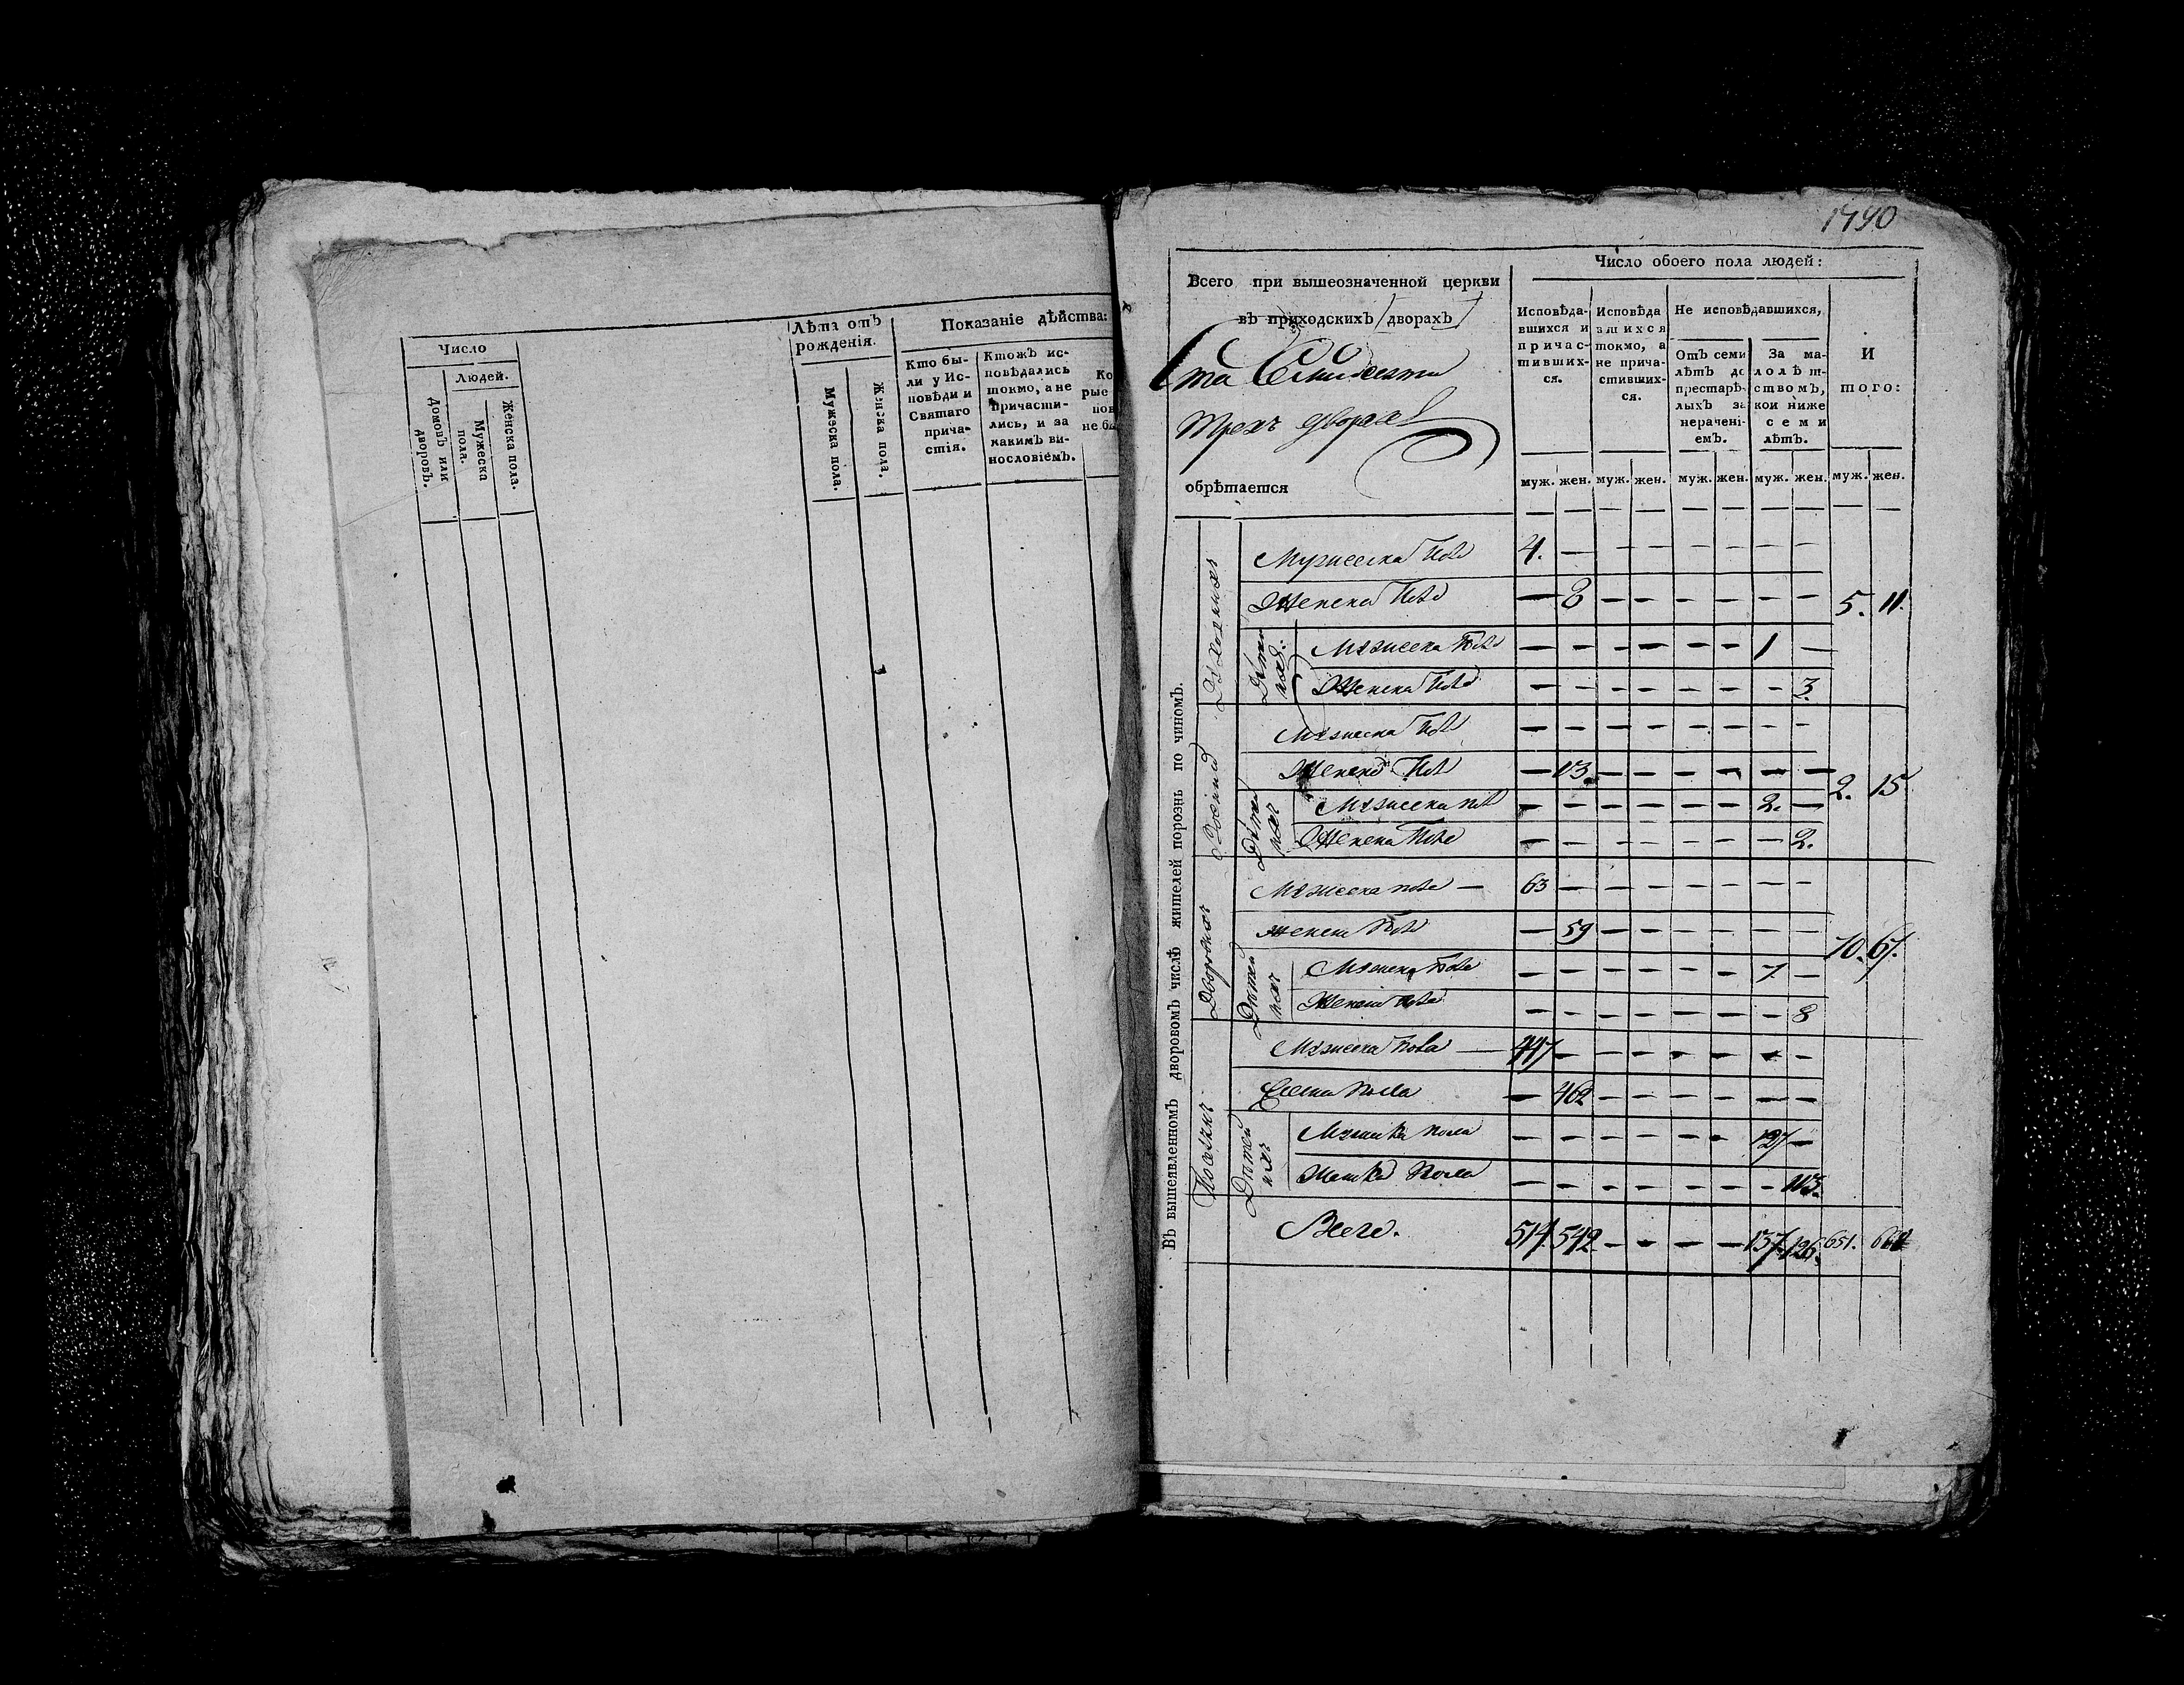 Число
Людей.
Домовъ или дворовъ.
Мужеска пола.
Женска пола.
Лѣта отъ
рожденія.
Мужеска пола.
Женска пола.
Показаніе дѣйства:
Кто бы-
ли у Ис-
повѣди и
Святаго
прича-
стія.
Ктожъ ис-
повѣдались
токмо, а не
причасти-
лись, и за
какимъ ви-
нословіемъ.
Ко
рые
пов
не бы
1790
Всего при вышеозначенной церкви
въ приходскихъ дворахъ
Ста Семидесяти
трехъ дворахъ
обрѣтается
Число обоего пола людей:
Исповѣда-
вшихся и
причас-
тивших-
ся.
Исповѣда
вшихся
токмо, а
не прича-
стивших-
ся.
Не исповѣдавшихся,
Отъ семи
лѣтъ до
престарѣ-
лыхъ за
нерачені-
емъ.
За ма-
лолѣт-
ствомъ,
кои ниже
семи
лѣтъ.
И
того:
муж. жен. муж. жен. муж. жен. муж. жен. муж. жен.
Въ вышеявленномъ дворовомъ числѣ жителей порознь по чиномъ.
Духовныхъ
Мужеска 4. — — — — — — —
Женска — 8 — — — — — — 5. 11.
Мужеска — — — — — — 1 —
Женска — — — — — — — 3.
Мужеска — — — — — — — —
Женска — 13. — — — — — — 2. 15
Мужеска — — — — — — 2. —
Женска — — — — — — — 2.
Дворовыхъ
Мужеска пола — 63 — — — — — — —
женска — 59 — — — — — — 70. 67.
Дѣтей ихъ
Мужеска — — — — — — 7. —
Женска — — — — — — — 8
Мужеска пола — 447 — — — — — — —
пола — 462 — — — — — —
Дѣтей ихъ
пола — — — — — — 127 —
Женска пола — — — — — — — 113.
Всего. 514. 542. — — — — 137. 126. 651.